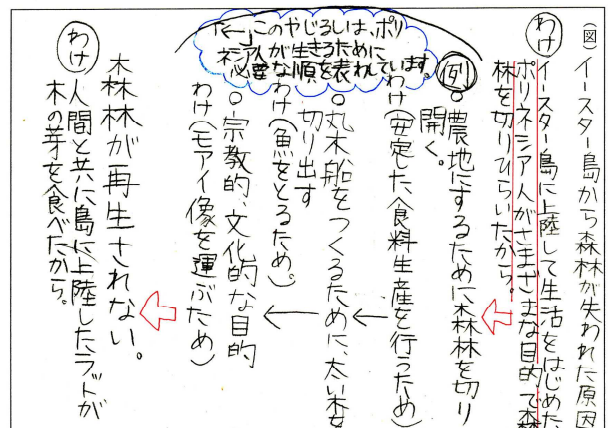 (図) イースター島から森林が失われた原因
わけ イースター島に上陸して生活をはじめた
ポリネシア人がさまざまな目的で森
林を切りひらいたから。
例 ○農地にするために森林を切り
開く。
わけ(安定した食料生産を行うため)
○丸木船をつくるために、太い木を
切り出す
わけ(魚をとるため。)
○宗教的、文化的な目的
わけ(モアイ像を運ぶため)
「←」このやじるしは、ポリ
ネシア人が生きるために
必要な順を表わしています。
森林が再生されない。
わけ 人間と共に島に上陸したラットが
木の芽を食べたから。